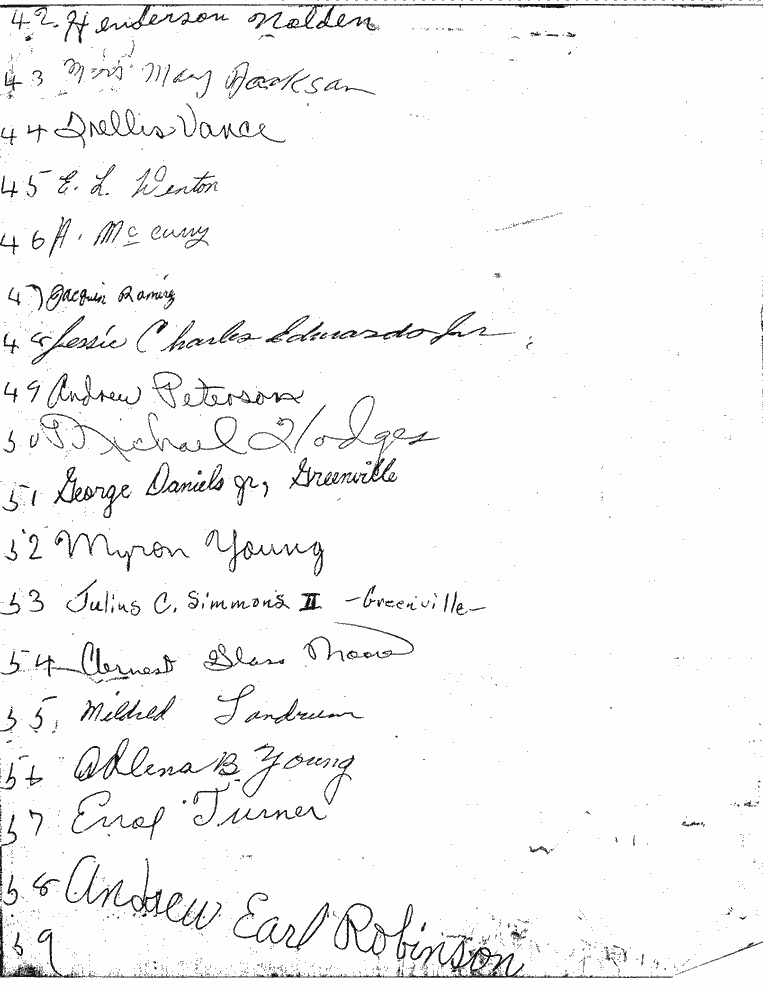 42. Henderson Nolden
43 Mrs Mary Jackson
44 Trellis Vance
45 E. L. Wenton
46 A. McCurry
47) Jacquin Ramirez
48 Jessie Charles Edwards Jr
49 Andrew Peterson
50 Michael Hodges
51 George Daniels Jr, Greenville
52 Myron Young
53 Julius C. Simmons II -Greenville-
54 Glass Moore
55, Mildred Landrum
56 Adlena B Young
57 Errol Turner
58 Andrew Earl Robinson
59